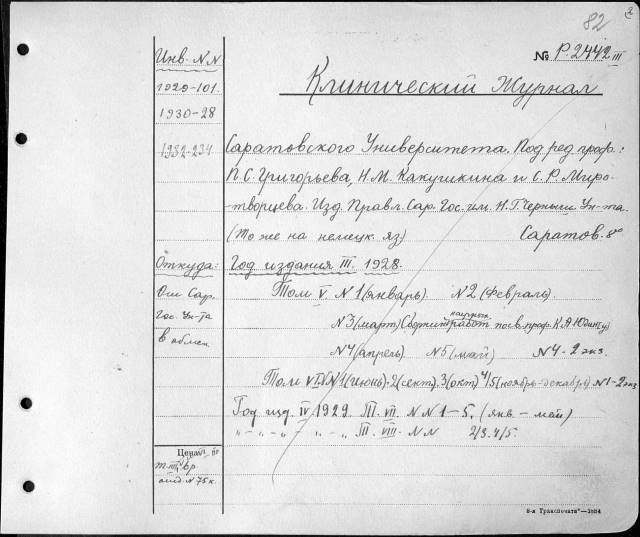 82
№ Р.2442 III
Инв. N N
Клинический Журнал
1929-101.
1930-28
1932-234
Саратовского Университета. Под ред. проф.:
П. С. Григорьева, Н. М. Какушкина и С. Р. Миро-
творцева. Изд. Правл. Сар. Гос. им. Н. Г. Черныш. Ун-та.
(То же на немецк. яз.) Саратов. 8°
Откуда: Год издания III. 1928.
От Сар.
Гос. Ун-та
в обмен
Том V. N 1 (январь). N 2 (февраль)
N 3 (март) научных работ посв. проф. К. А. Юдину)
N 4 (апрель). N 5 (май) N 4 - 2 экз.
Том VI. N 1 (июнь). 2 (сент.). 3 (окт.) 4/5 (ноябрь-декабрь). N 1 - 2 экз
Год изд. IV 1929. Т. VII. N N 1-5. (янв - май)
" - " - " - " - " Т. VIII. N N 2/3. 4/5.
Цена
N 75 к.
8-я Транспечать"—2584